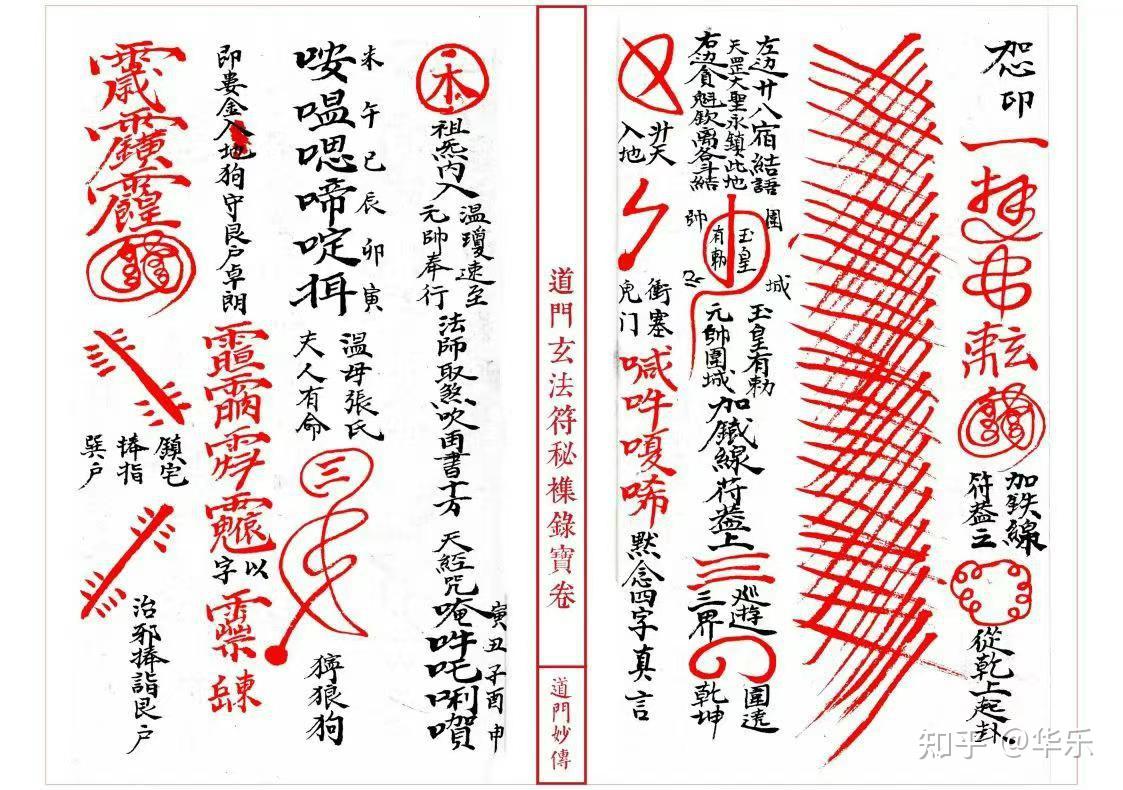 恕印
加鉄線
符蓋之
從乾上起卦
左边廿八宿結語
天罡大聖永鎮此地
右边貪魁欽离各斗結
圍
城
帥
玉皇
有勅
玉皇有勅
元帥圍城
加鐵線符蓋上
三
巡遊
三界
圍遶
乾坤
升天
入地
衝塞
鬼门
喊吽嗄唏
默念四字真言
道門玄法符秘襍錄寶卷
道門妙傳
本
祖炁内入
温瓊速至
元帥奉行
法師取煞吹再書十方
天經咒
唵吽吒唎㗒
寅丑子酉申
咹嗢嗯啼啶挕
未午巳辰卯寅
温母張氏
夫人有命
三
獰狼狗
即婁金入地狗守艮户卓朗
以
字
鎮宅
捧指
巽户
治邪捧詣艮户
知乎 @华乐